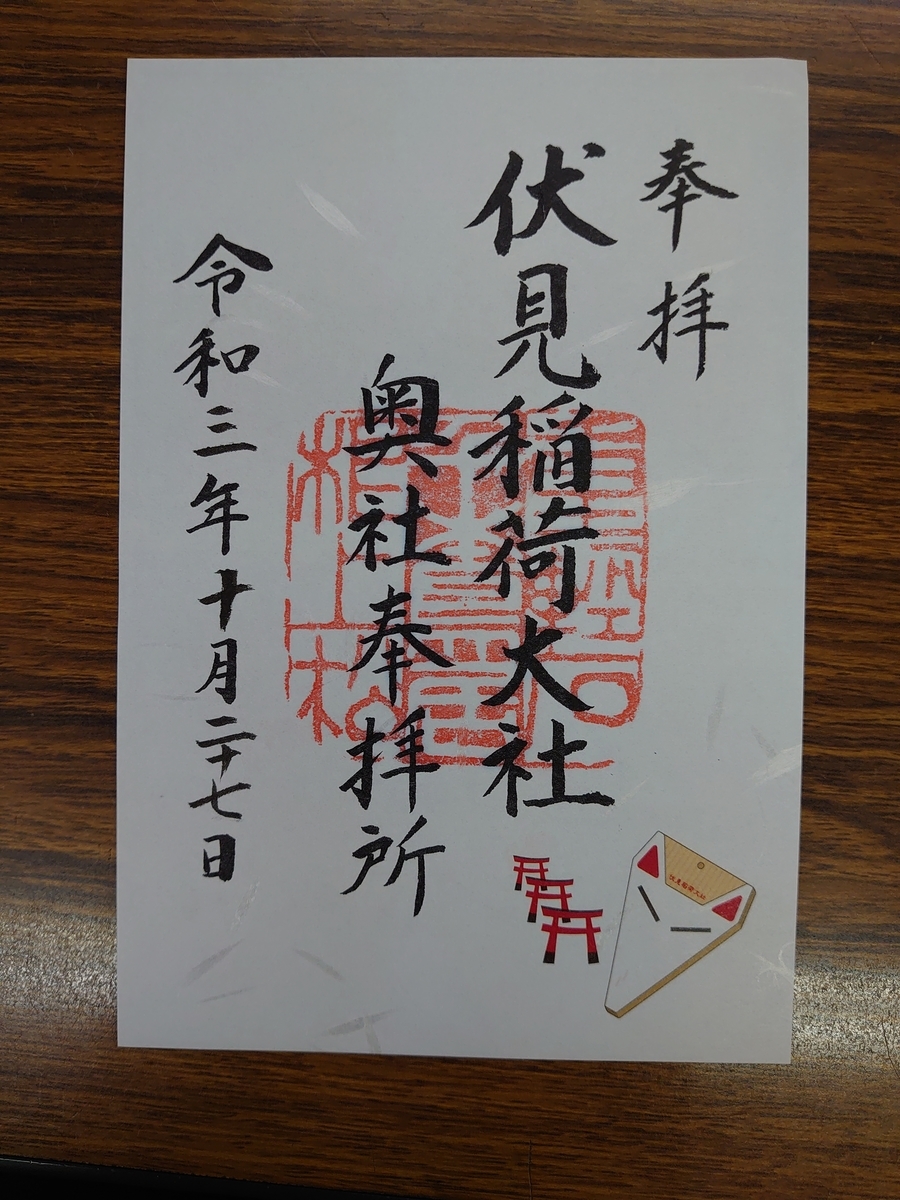 奉拝
伏見稲荷大社
奥社奉拝所
令和三年十月二十七日
伏見稲荷大社